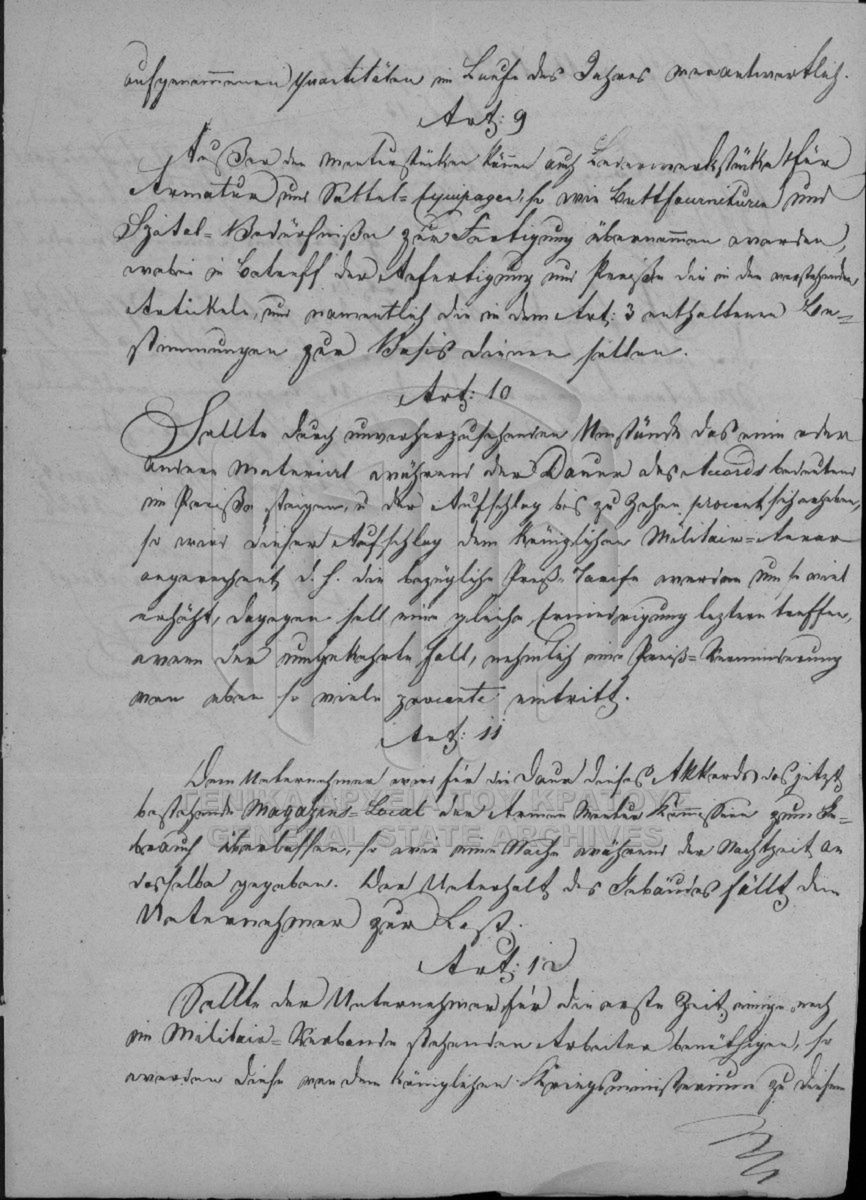 aufgenommenen Quantitäten im Laufe des Jahres verantwortlich.
Art: 9
Außer den Monturstücken können auch Lederwerkstücke für
Armatur und Sattel-Equipagen, so wie Bettfournituren und
Spital-Bedürfniße zur Fertigung übernommen werden,
wobei in Betreff der Anfertigung und Preiße die in den vorstehenden
Artikeln, und namentlich die in dem Art: 3 enthaltenen Be=
stimmungen zur Basis dienen sollen.
Art: 10
Sollte durch unvorherzusehenden Umstände das eine oder
andere Material während der Dauer des Accords bedeutend
im Preiße steigen, u der Aufschlag bis zu Zehen procent sich erheben,
so wird dieser Aufschlag dem Königlichen Militair-Aerar
angerechnet, d. h. die bezügliche Preiß-Tarife werden um so viel
erhöht, dagegen soll eine gleiche Erniedrigung leztere treffen,
wenn der umgekehrte Fall, nehmlich eine Preiß-Verminderung
von eben so viele procente eintritt.
Art: 11
Dem Unternehmer wird für die Dauer dieses Akkords das jetzt
bestehende Magazins-Local der Armee Montur Kommission zum Ge=
brauch überlassen, so wie eine Wache während der Nachtzeit an
dasselbe gegeben. Der Unterhalt des Gebäudes fällt dem
Unternehmer zur Last.
Art: 12
Sollte der Unternehmer für die erste Zeit einige noch
im Militair-Verbande stehenden Arbeiter benöthigen, so
werden diese von dem Königlichen Kriegsministerium zu diesem
ΓΕΝΙΚΑ ΑΡΧΕΙΑ ΤΟΥ ΚΡΑΤΟΥΣ
GENERAL STATE ARCHIVES